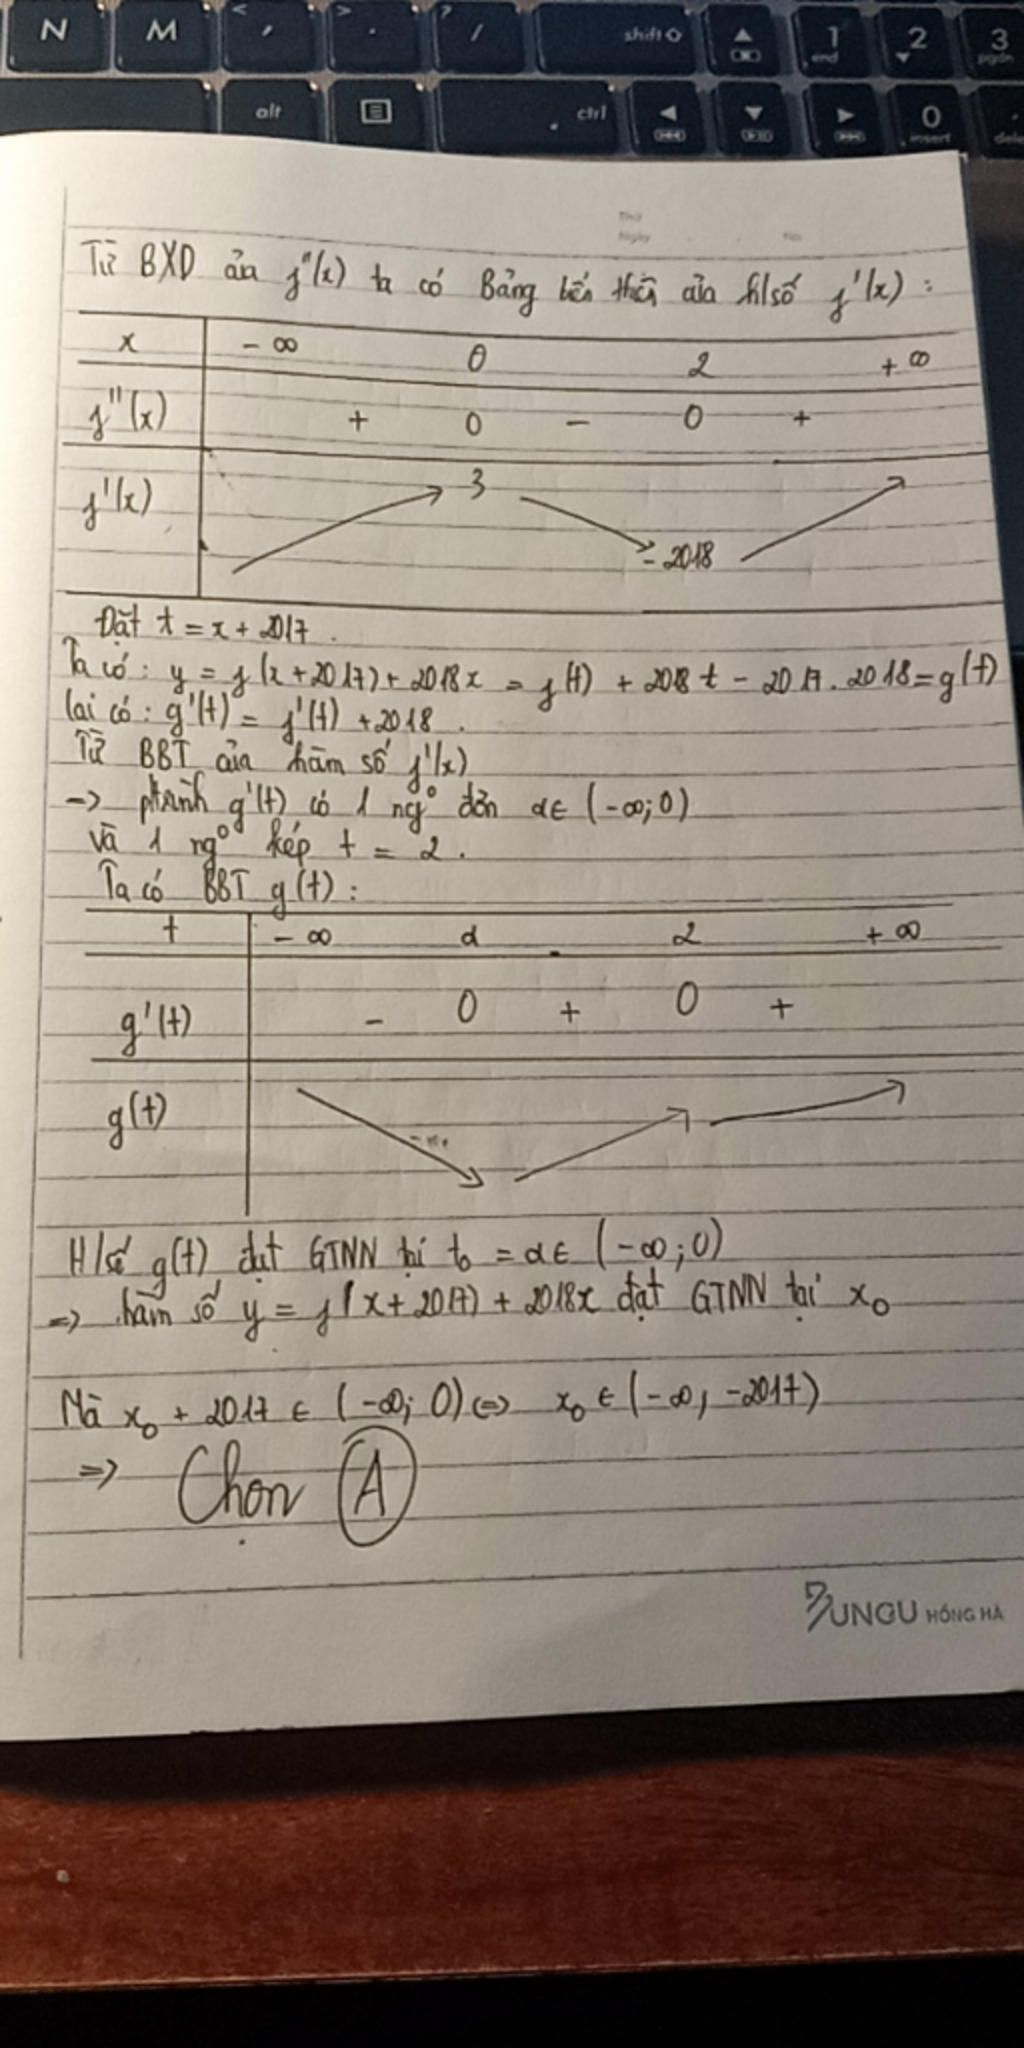 N M < , > . ? / shift ⇧ ▲ 1 end 2 ▼ 3 pgdn
alt ctrl ◄ ▼ ► 0 insert . dele
Thứ
Ngày No
Từ BXD của f''(x) ta có Bảng biến thiên của h/số f'(x) :
x - ∞ 0 2 + ∞
f''(x) + 0 - 0 +
f'(x) 3 - 2018
Đặt t = x + 2017 .
Ta có : y = f (x + 2017) + 2018x = f(t) + 2018 t - 2017 . 2018 = g(t)
lại có : g'(t) = f'(t) + 2018 .
Từ BBT của hàm số f'(x)
-> ptrình g'(t) có 1 ngº đơn α ∈ (-∞; 0)
và 1 ngº kép t = 2 .
Ta có BBT g(t) :
t - ∞ α 2 + ∞
g'(t) - 0 + 0 +
g(t)
H/số g(t) đạt GTNN tại t₀ = α ∈ (-∞ ; 0)
=> hàm số y = f(x + 2017) + 2018x đạt GTNN tại x₀
Mà x₀ + 2017 ∈ (-∞; 0) <=> x₀ ∈ (-∞, -2017)
=> Chọn A
PUNGU HỒNG HÀ